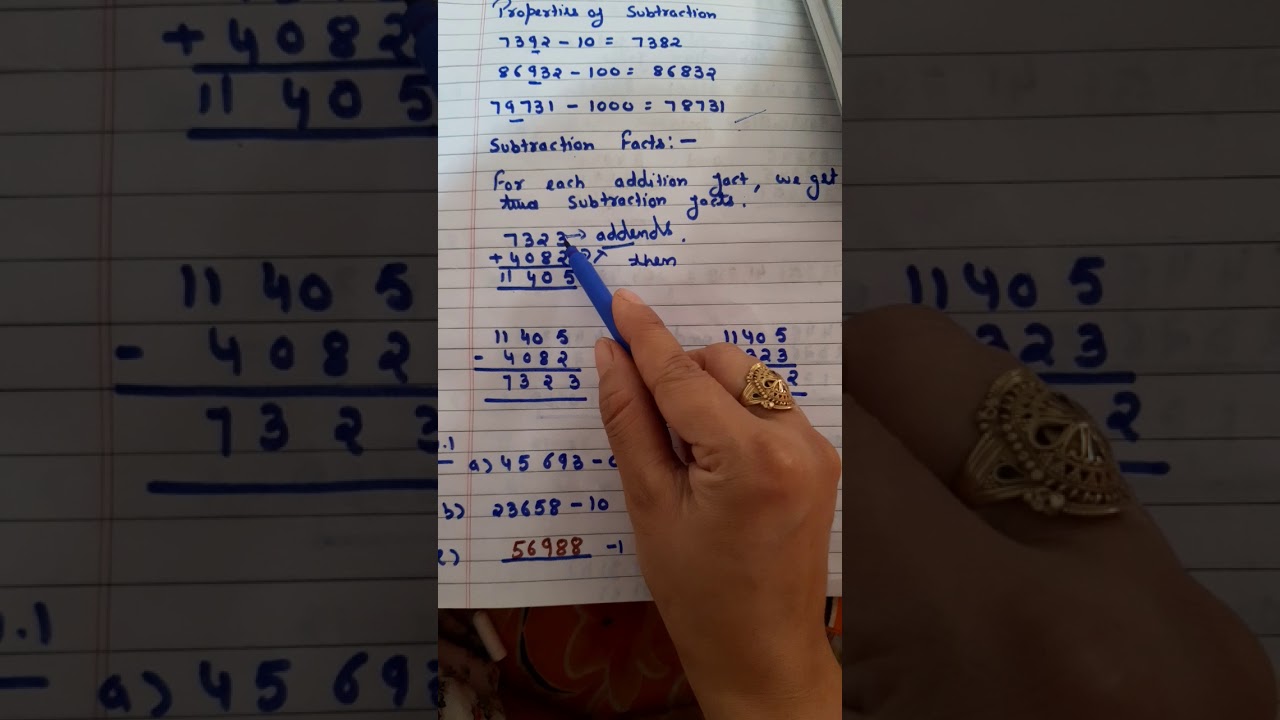 Properties of Subtraction
7392 - 10 = 7382
86932 - 100 = 86832
79731 - 1000 = 78731
Subtraction Facts:-
For each addition fact, we get
two subtraction facts.
7323 → addends.
+ 4082 then
11 405
11 40 5
- 4082
7323
1140 5
323
2
.1
a) 45 693 -
b) 23658 - 10
c) 56988 -1